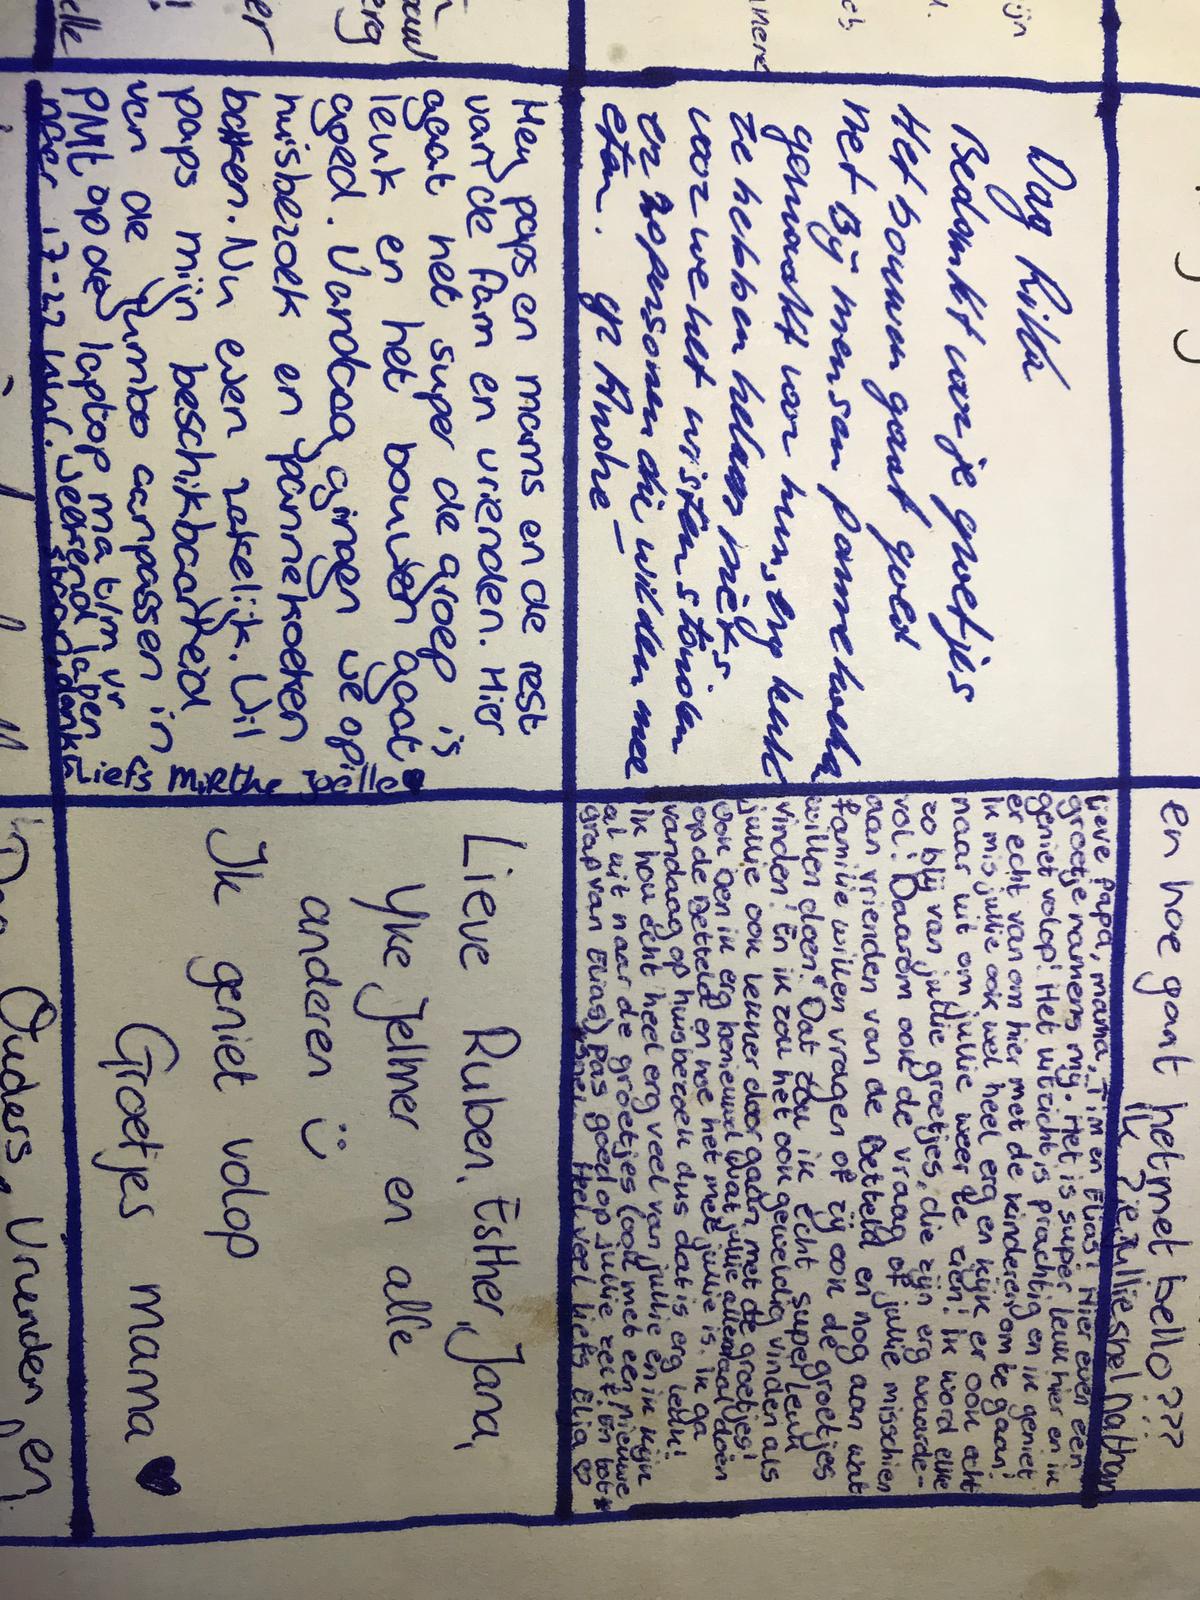 Dag Rita
Bedankt voor je groetjes
Het bouwen gaat goed
met Bij mensen pannekoeken
gemaakt voor hun, erg leuk
ze hebben helemaal niets
voor we het wisten stonden
er personen die wilden mee
eten. gr Anske
en hoe gaat het met bello???
Ik zie jullie snel Nathan
Lieve Papa, mama, Tim en Elias! Hier even een
groetje namens mij. Het is super leuk hier en ik
geniet volop! Het uitzicht is prachtig en ik geniet
er echt van om hier met de kinderen om te gaan!
Ik mis jullie ook wel heel erg en kijk er ook echt
naar uit om jullie weer te zien! Ik word elke
zo blij van jullie groetjes, die zijn erg waarde-
vol! Daarom ook de vraag of jullie misschien
aan vrienden van de Betteld en nog aan wat
familie willen vragen of zij ook de groetjes
willen doen. Dat zou ik echt super leuk
vinden! En ik zou het ook geweldig vinden als
jullie ook lekker door gaan met de groetjes!
Ook ben ik erg benieuwd wat jullie allemaal doen
op de Betteld en hoe het met jullie is. Ik ga
vandaag op huisbezoek dus dat is erg leuk!
Ik hou echt heel erg veel van jullie en ik kijk
al uit naar de groetjes (ook met een nieuwe
grap van Elias) pas goed op jullie zelf! En tot
Heel veel liefs Elia ♡
Hey paps en mams en de rest
van de fam en vrienden. Hier
gaat het super de groep is
leuk en het bouwen gaat
goed. Vandaag gingen we op
huisbezoek en pannekoeken
bakken. Nu even zakelijk. Wil
paps mijn beschikbaarheid
van de jumbo aanpassen in
PMT op de laptop ma t/m vr
naar 17-22 uur. Weekend open
staan, dankje
Liefs Mirthe Joëlle
Lieve Ruben, Esther, Jana,
Yke Jelmer en alle
anderen :)
Ik geniet volop
Groetjes mama ♥
Ouders, Vrienden en